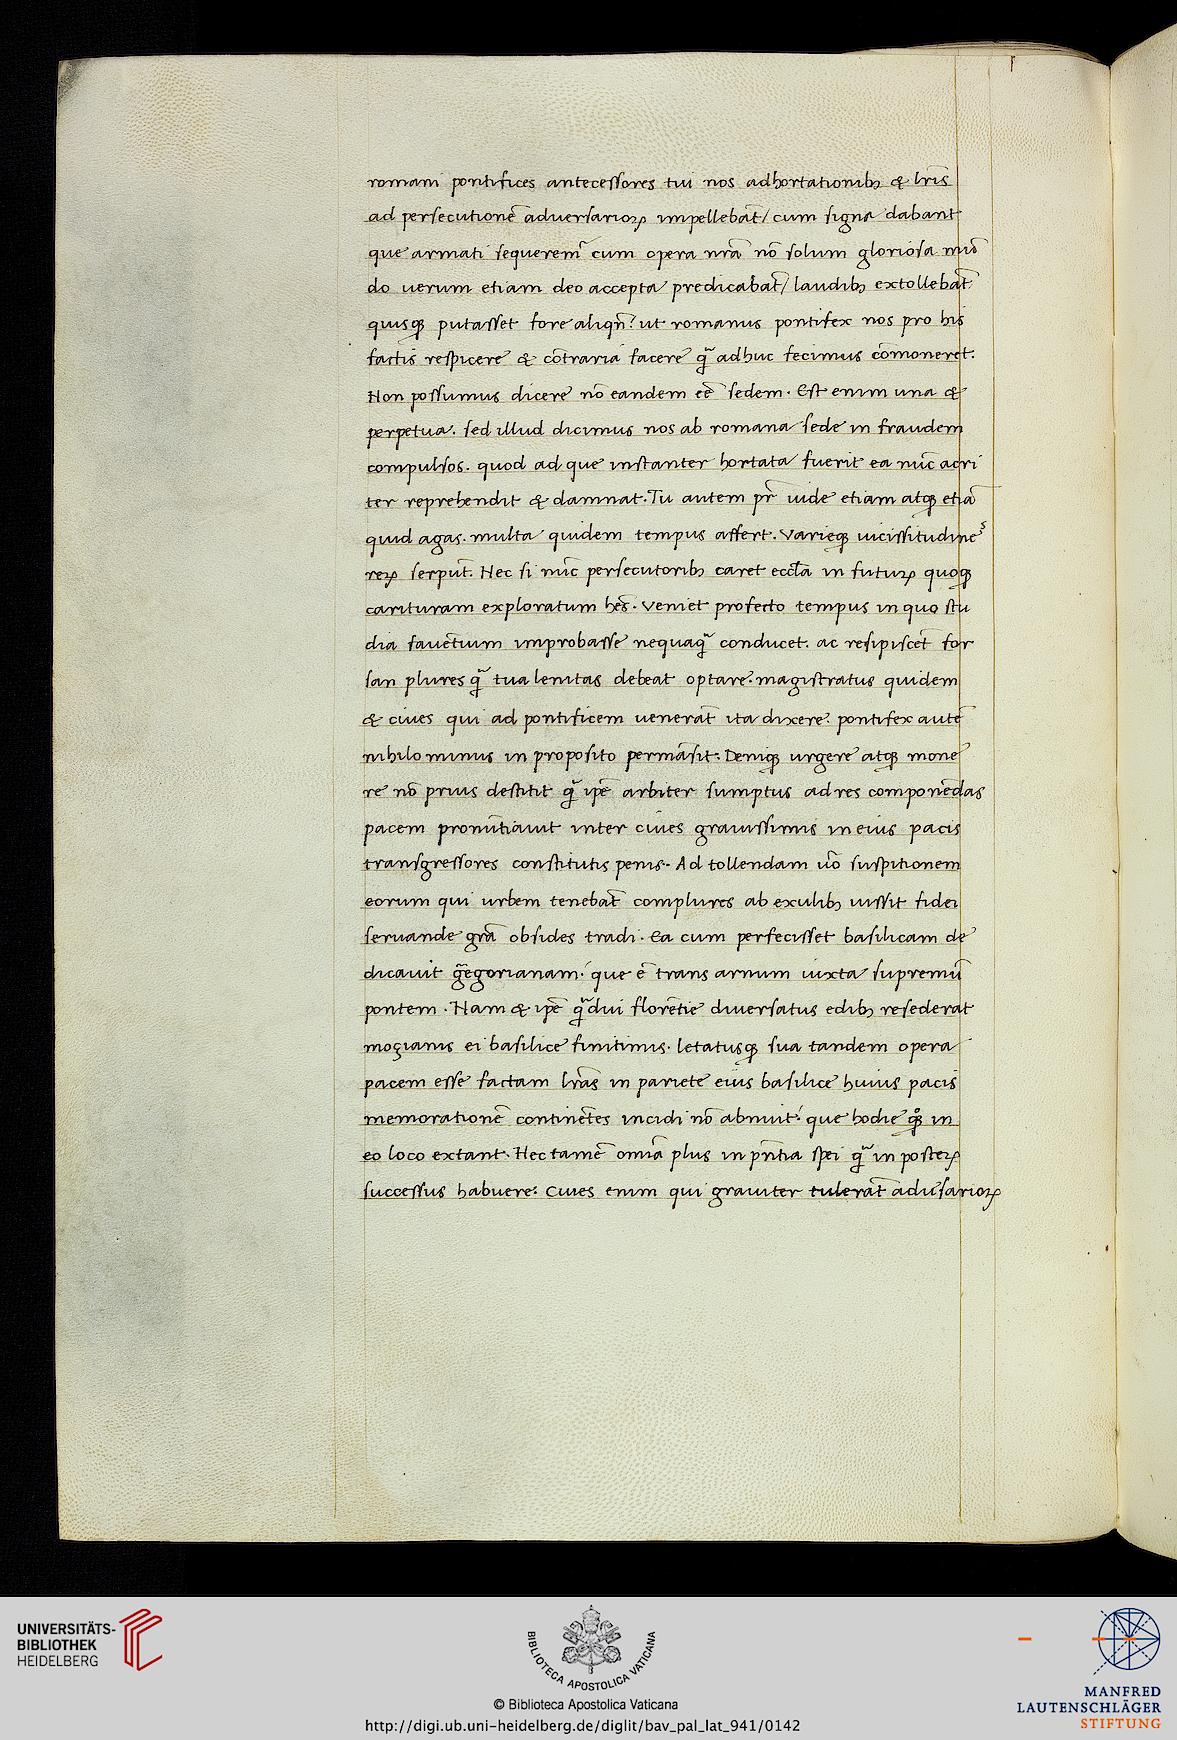 romani pontifices antecessores tui nos adhortationibꝫ & lr̄is
ad persecutionē adversarioꝝ impellebāt/ cum signa dabant
que armati sequerem̄ cum opera nr̄a nō solum gloriosa mūo
do uerum etiam deo accepta predicabāt/ laudibꝫ extollebāt
quisqꝫ putasset fore aliqn̄? ut romanus pontifex nos pro his
factis respicere & cōtraria facere q̄ adhuc fecimus cōmoneret.
Non possumus dicere nō eandem eē sedem. Est enim una &
perpetua. sed illud dicimus nos ab romana sede in fraudem
compulsos. quod ad que instanter hortata fuerit ea nūc acri
ter reprehendit & damnat. Tu autem pr̄ uide etiam atqꝫ etiā
quid agas. multa quidem tempus affert. Varieqꝫ uicissitudines
reꝝ serpūt. Nec si nūc persecutoribꝫ caret eccl̄a in futuꝝ quoqꝫ
carituram exploratum hēs. Veniet profecto tempus in quo stu
dia fauētium improbasse nequaq̄ conducet. ac resipiscēt for
san plures q̄ tua lenitas debeat optare. magistratus quidem
& ciues qui ad pontificem uenerāt ita dixere. pontifex autē
nihilo minus in proposito permāsit. Deniqꝫ urgere atqꝫ mone
re nō prius destitit q̄ ipē arbiter sumptus ad res componēdas
pacem pronūtiauit inter ciues grauissimis in eius pacis
transgressores constitutis penis. Ad tollendam ūo suspitionem
eorum qui urbem tenebāt complures ab exulibꝫ iussit fidei
seruande grā obsides tradi. Ea cum perfecisset basilicam de
dicauit grēgorianam. que ē trans arnum iuxta supremū
pontem. Nam & ipē q̄diu florētie diuersatus edibꝫ resederat
moçianis ei basilice finitimis. letatusqꝫ sua tandem opera
pacem esse factam lr̄as in pariete eius basilice huius pacis
memorationē continētes incidi nō abnuit. que hodie qꝫ in
eo loco extant. Nec tamē omīa plus in pn̄tia spei q̄ in posteꝝ
successus habuere. Ciues enim qui grauiter tulerāt adūsarioꝝ
UNIVERSITÄTS-
BIBLIOTHEK
HEIDELBERG
BIBLIOTECA APOSTOLICA VATICANA
© Biblioteca Apostolica Vaticana
http://digi.ub.uni-heidelberg.de/diglit/bav_pal_lat_941/0142
MANFRED
LAUTENSCHLÄGER
STIFTUNG